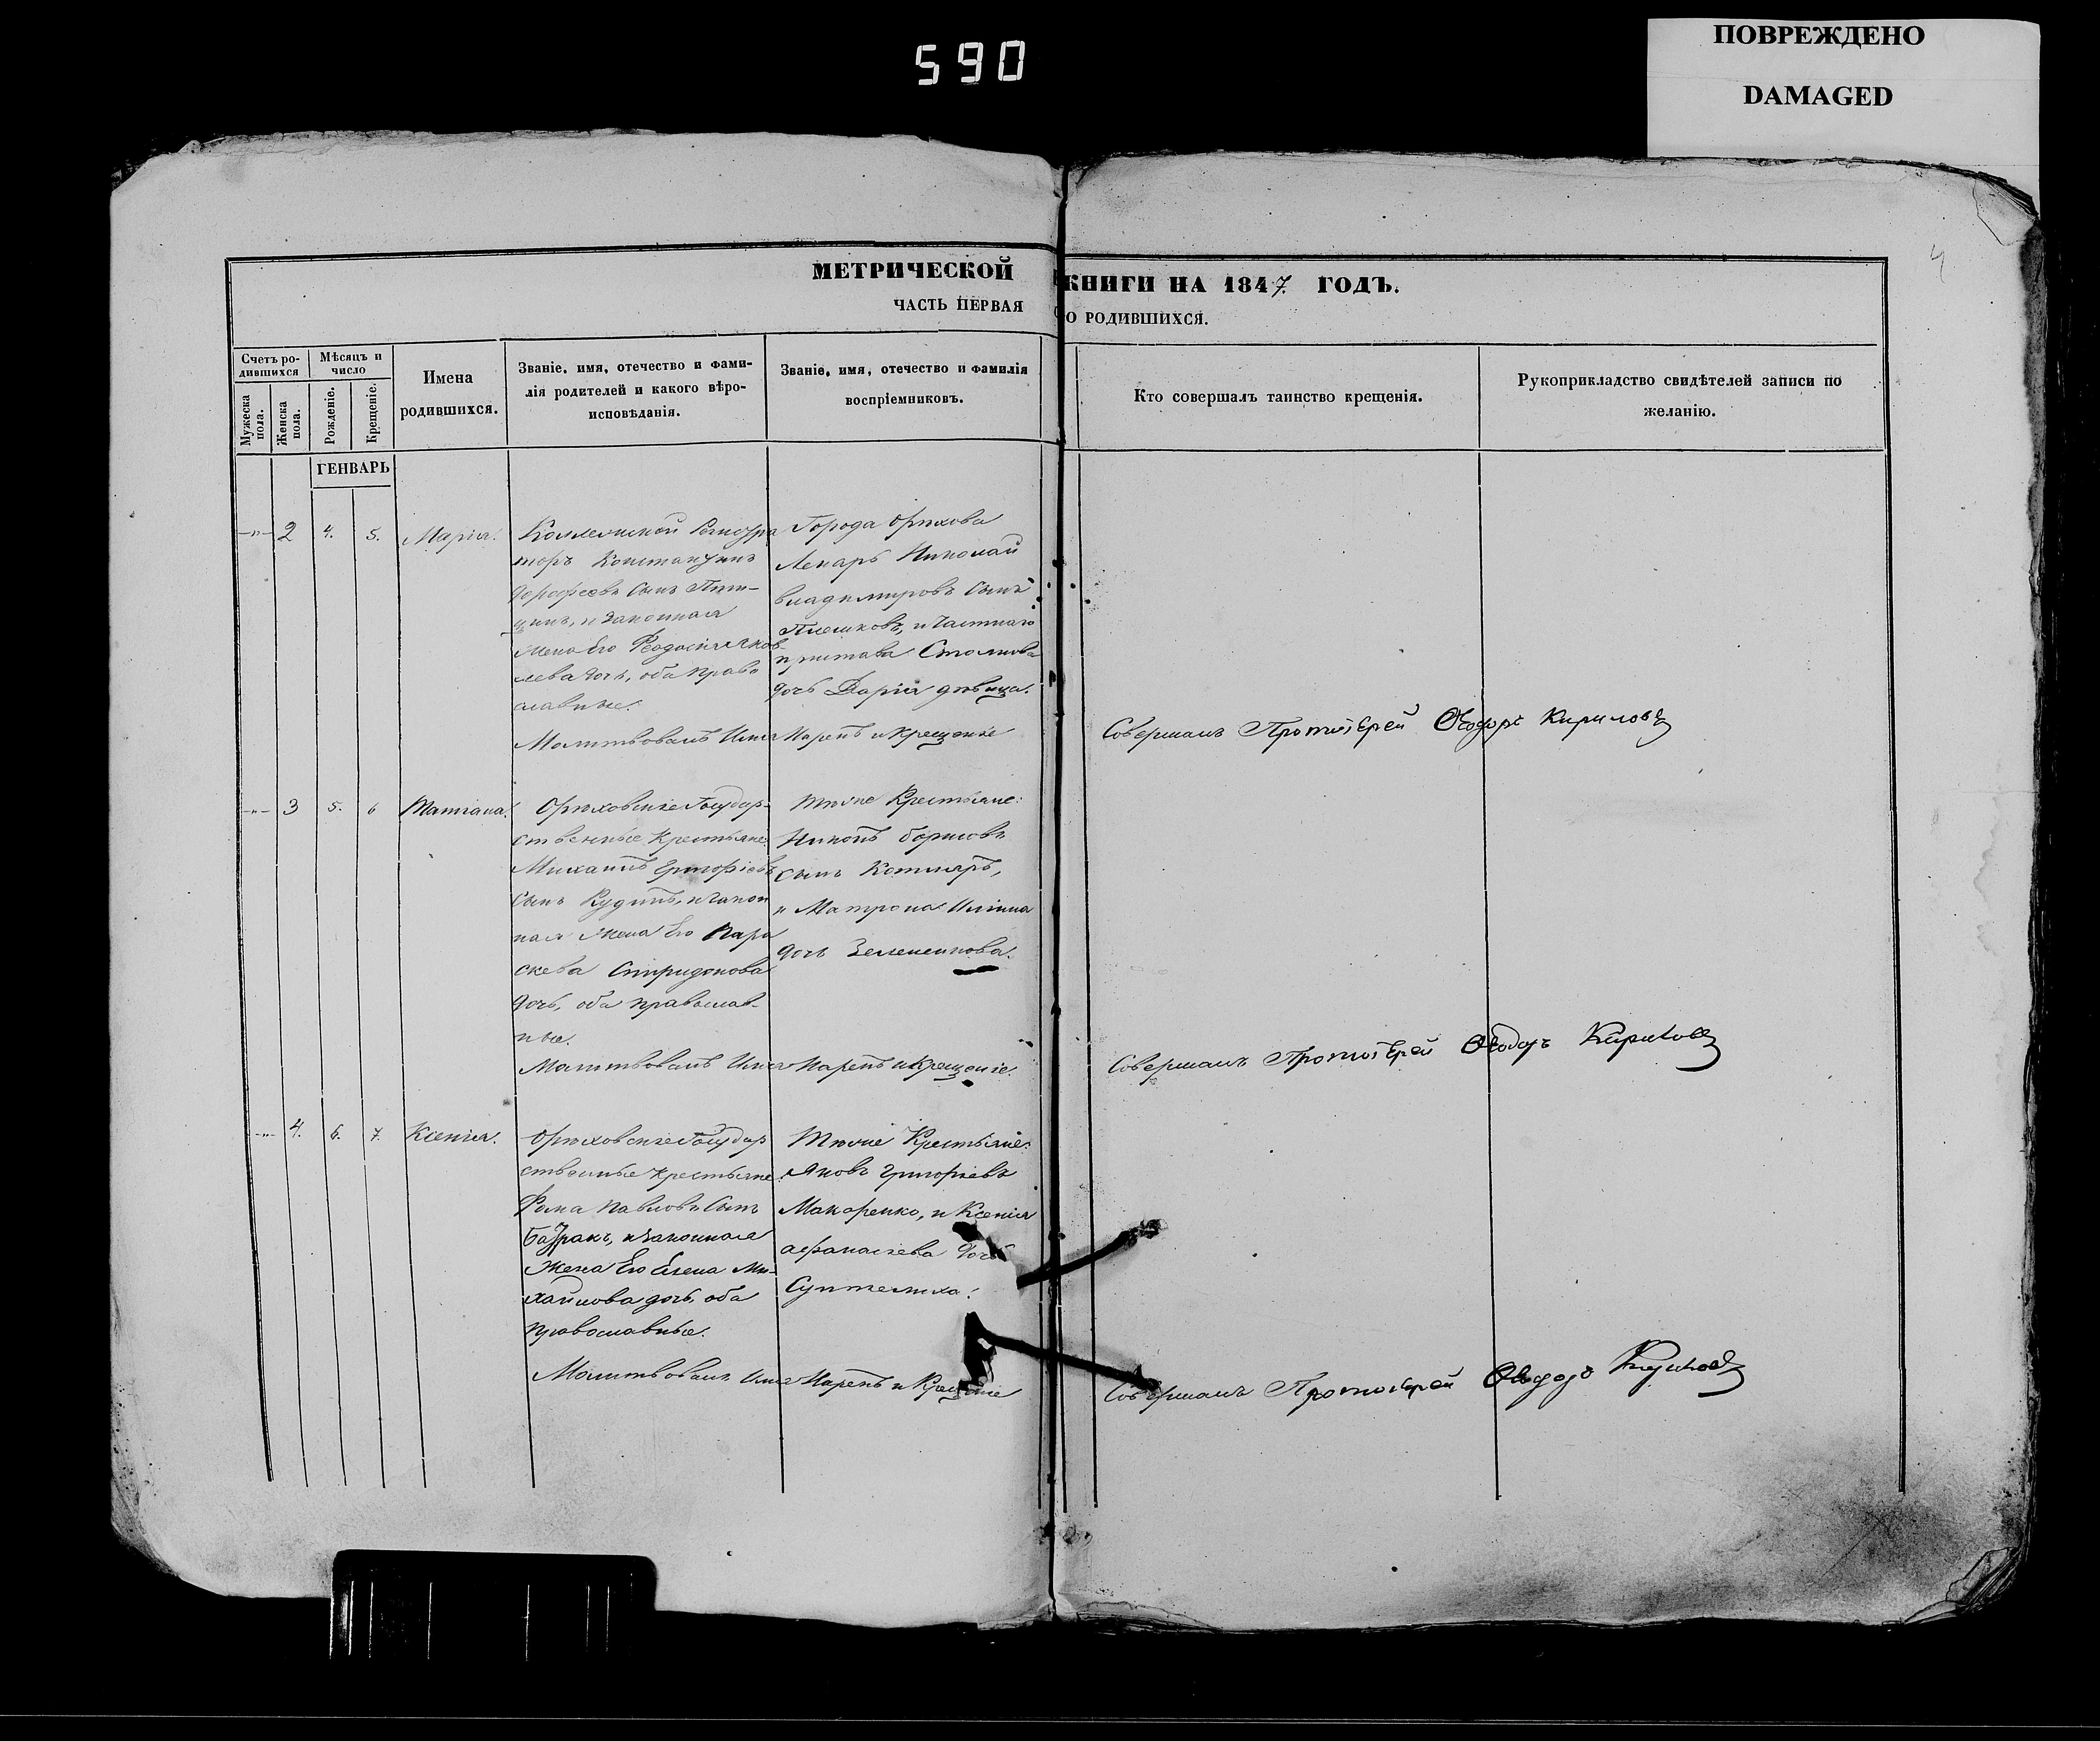 ПОВРЕЖДЕНО
DAMAGED
590
4
МЕТРИЧЕСКОЙ КНИГИ НА 1847. ГОДЪ.
ЧАСТЬ ПЕРВАЯ О РОДИВШИХСЯ.
Счетъ ро-
дившихся
Мужеска
пола.
Женска
пола.
Мѣсяцъ и
число
Рожденіе.
Крещеніе.
Имена
родившихся.
Званіе, имя, отечество и фами-
лія родителей и какого вѣро-
исповѣданія.
Званіе, имя, отечество и фамилія
воспріемниковъ.
Кто совершалъ таинство крещенія.
Рукоприкладство свидѣтелей записи по
желанію.
ГЕНВАРЬ
-"- 2 4. 5. Марія.
Коллежской Регистра
торъ Константинъ
Дорофеевъ сынъ Пти-
цынъ, и законная
жена Его Феодосія Яков-
лева дочь, оба право
славные.
Города Орѣхова
Лекарь Николай
Владимировъ сынъ
и Частнаго
пристава
дочь Дарія дѣвица.
Молитвовалъ Имя Нарекъ и Крещеніе
Совершалъ Протоіерей Ѳеодоръ Кириловъ
-"- 3 5. 6 Татіана.
Орѣховскіе Государ-
ственные Крестьяне
Михаилъ Григоріевъ
сынъ и закон
ная жена Его Пара
скева Спиридонова
дочь, оба православ-
ные.
Тѣже Крестьяне:
Никонъ Борисовъ
сынъ Котляръ,
и Матрона
дочь
Молитвовалъ Имя Нарекъ и Крещеніе.
Совершалъ Протоіерей Ѳеодоръ Кириловъ
-"- 4. 6. 7. Ксенія.
Орѣховскіе Государ
ственные крестьяне
Фома Павловъ сынъ
Батракъ, и законная
жена Его Елена Ми-
хайлова дочь, оба
православные.
Тѣже Крестьяне:
Яковъ Григоріевъ
Макаренко, и Ксенія
Афанасіева дочь
Молитвовалъ Имя Нарекъ и Крещеніе
Совершалъ Протоіерей Ѳеодоръ Кириловъ